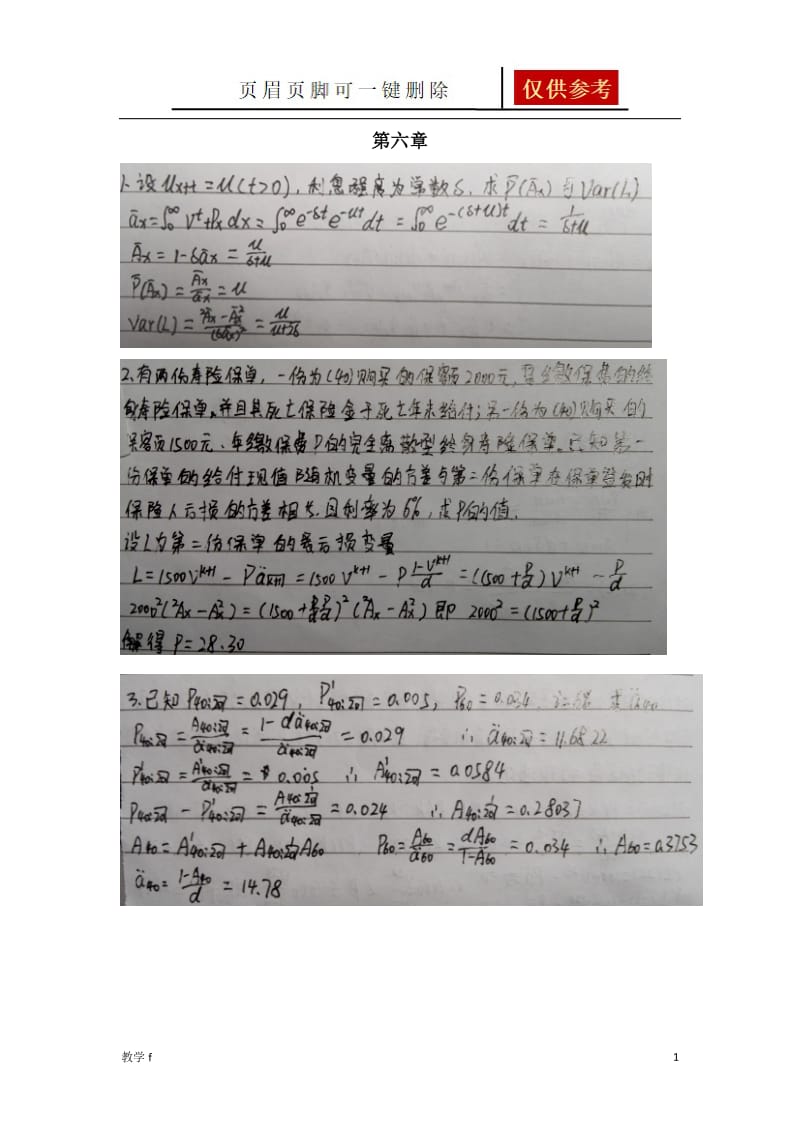 页眉页脚可一键删除
仅供参考
第六章
1.设 μx+t = μ(t>0), 利息强度为常数δ. 求 P̄(Āx) 与 Var(L)
āx = ∫₀^∞ v^t tPx dx = ∫₀^∞ e^-δt e^-μt dt = ∫₀^∞ e^-(δ+μ)t dt = 1/(δ+μ)
Āx = 1-δāx = μ/(δ+μ)
P̄(Āx) = Āx/āx = μ
Var(L) = (²Āx - Āx²)/(δāx)² = μ/(μ+2δ)
2.有两份寿险保单, 一份为(40)购买的保额2000元, 趸缴保费的终
身寿险保单,并且其死亡保险金于死亡年末给付;另一份为(40)购买的
保额1500元、年缴保费P的完全离散型终身寿险保单。已知第一
份保单的给付现值随机变量的方差与第二份保单在保单签发时
保险人亏损的方差相等,且利率为6%,求P的值.
设L为第二份保单的亏损变量
L=1500v^k+1 - Pä_k+1| = 1500v^k+1 - P (1-v^k+1)/d = (1500+P/d)v^k+1 - P/d
2000²(²Ax-Ax²) = (1500+P/d)²(²Ax-Ax²) 即 2000² = (1500+P/d)²
解得 P=28.30
3.已知 P40:20| = 0.029, P¹40:20| = 0.005, P60 = 0.034, 求 ä40
P40:20| = A40:20|/ä40:20| = (1-dä40:20|)/ä40:20| = 0.029 ∴ ä40:20| = 11.6822
P¹40:20| = A¹40:20|/ä40:20| = 0.005 ∴ A¹40:20| = 0.0584
P40:20| - P¹40:20| = A40:20|¹/ä40:20| = 0.024 ∴ A40:20|¹ = 0.28037
A40 = A¹40:20| + A40:20|¹A60 P60 = A60/ä60 = dA60/(1-A60) = 0.034 ∴ A60 = 0.3753
ä40 = (1-A40)/d = 14.78
教学f 1